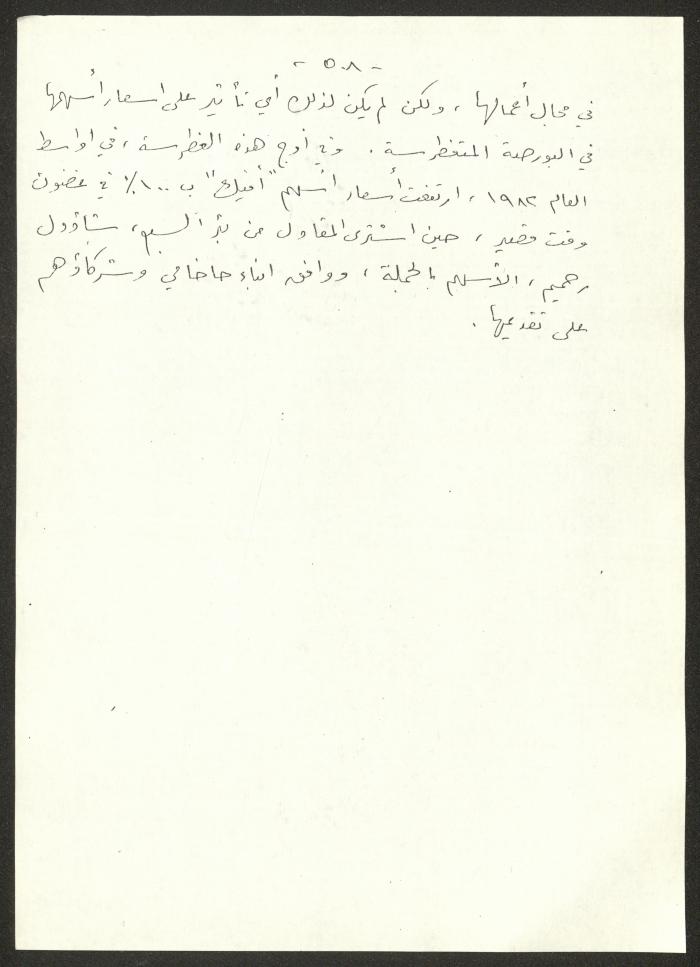 - ٥٠٨ -
في مجال أعمالها ، ولكن لم يكن لذلك أي تأثير على اسعار أسهمها
في البورصة المتغطرسة . وفي أوج هذه الغطرسة ، في اواسط
العام ١٩٨٢ ، ارتفعت أسعار أسهم " " ب ١٠٠٪ في غضون
وقت قصير ، حين اشترى المقاول من بئر السبع ، شاؤول
رحميم ، الأسهم بالجملة ، ووافق ابناء حاخامي وشركاؤهم
على تقديمها .